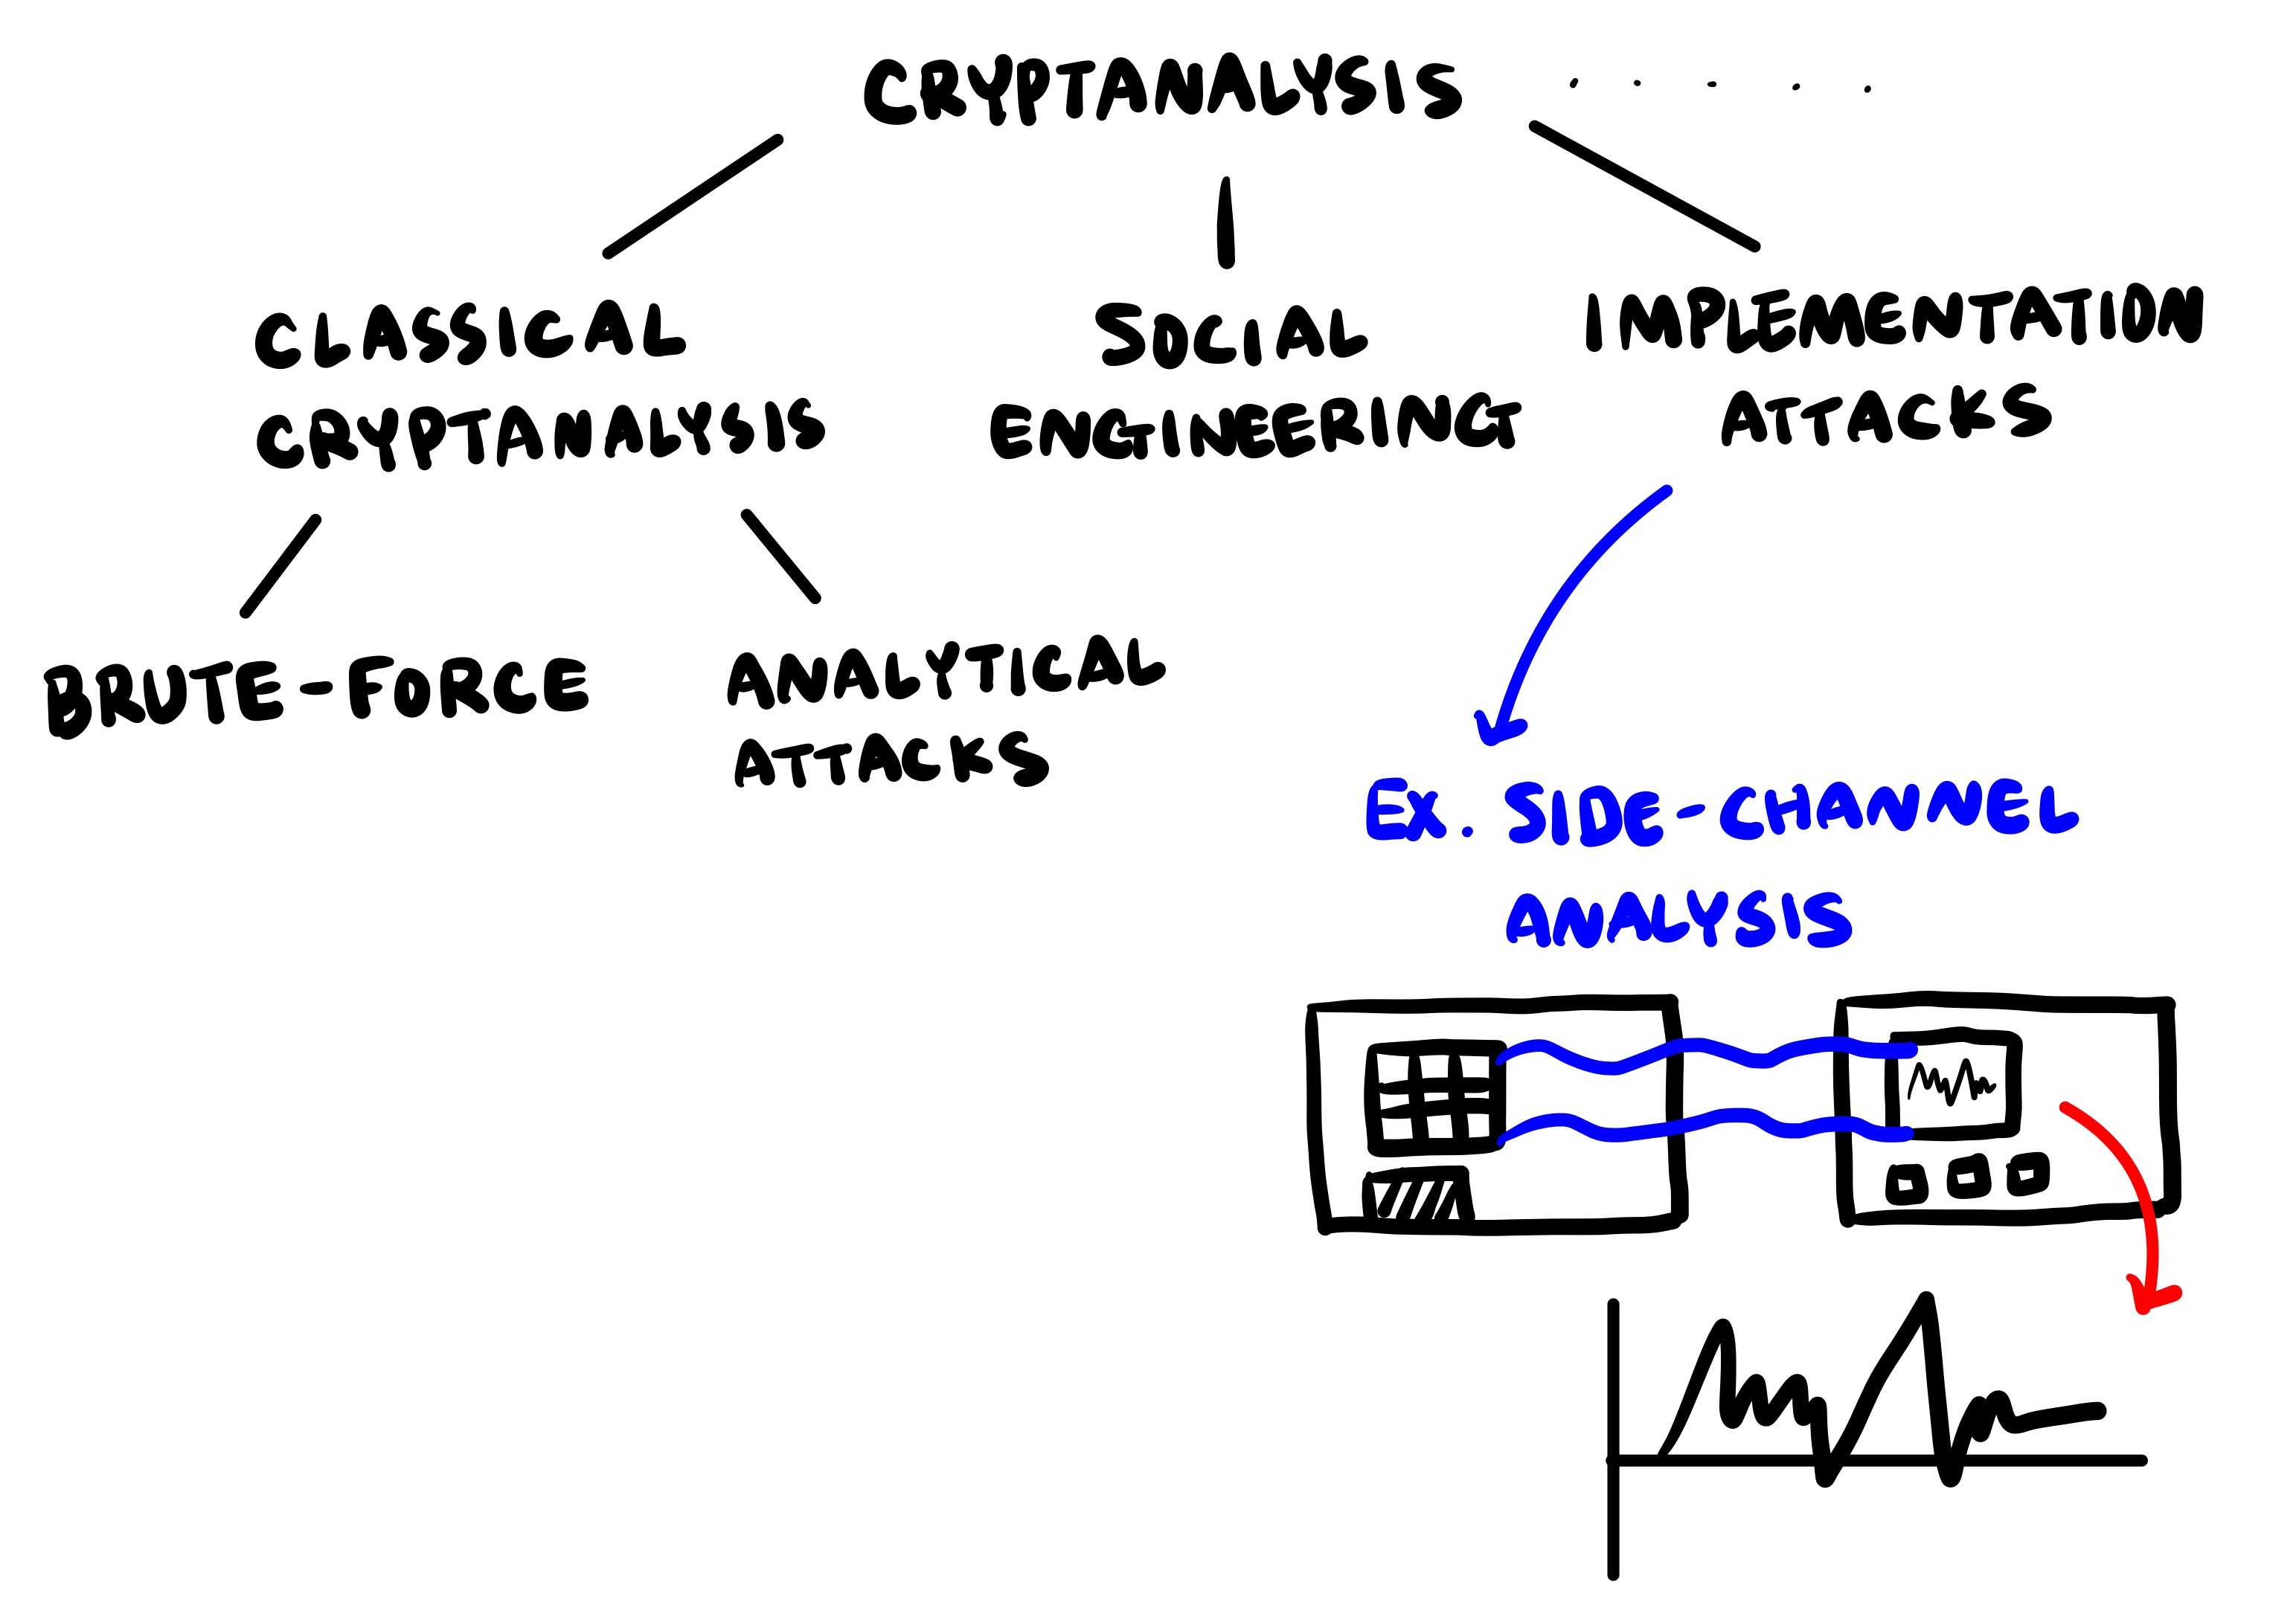 CRYPTANALYSIS .....
CLASSICAL
CRYPTANALYSIS
SOCIAL
ENGINEERING
IMPLEMENTATION
ATTACKS
BRUTE-FORCE
ANALYTICAL
ATTACKS
EX. SIDE-CHANNEL
ANALYSIS